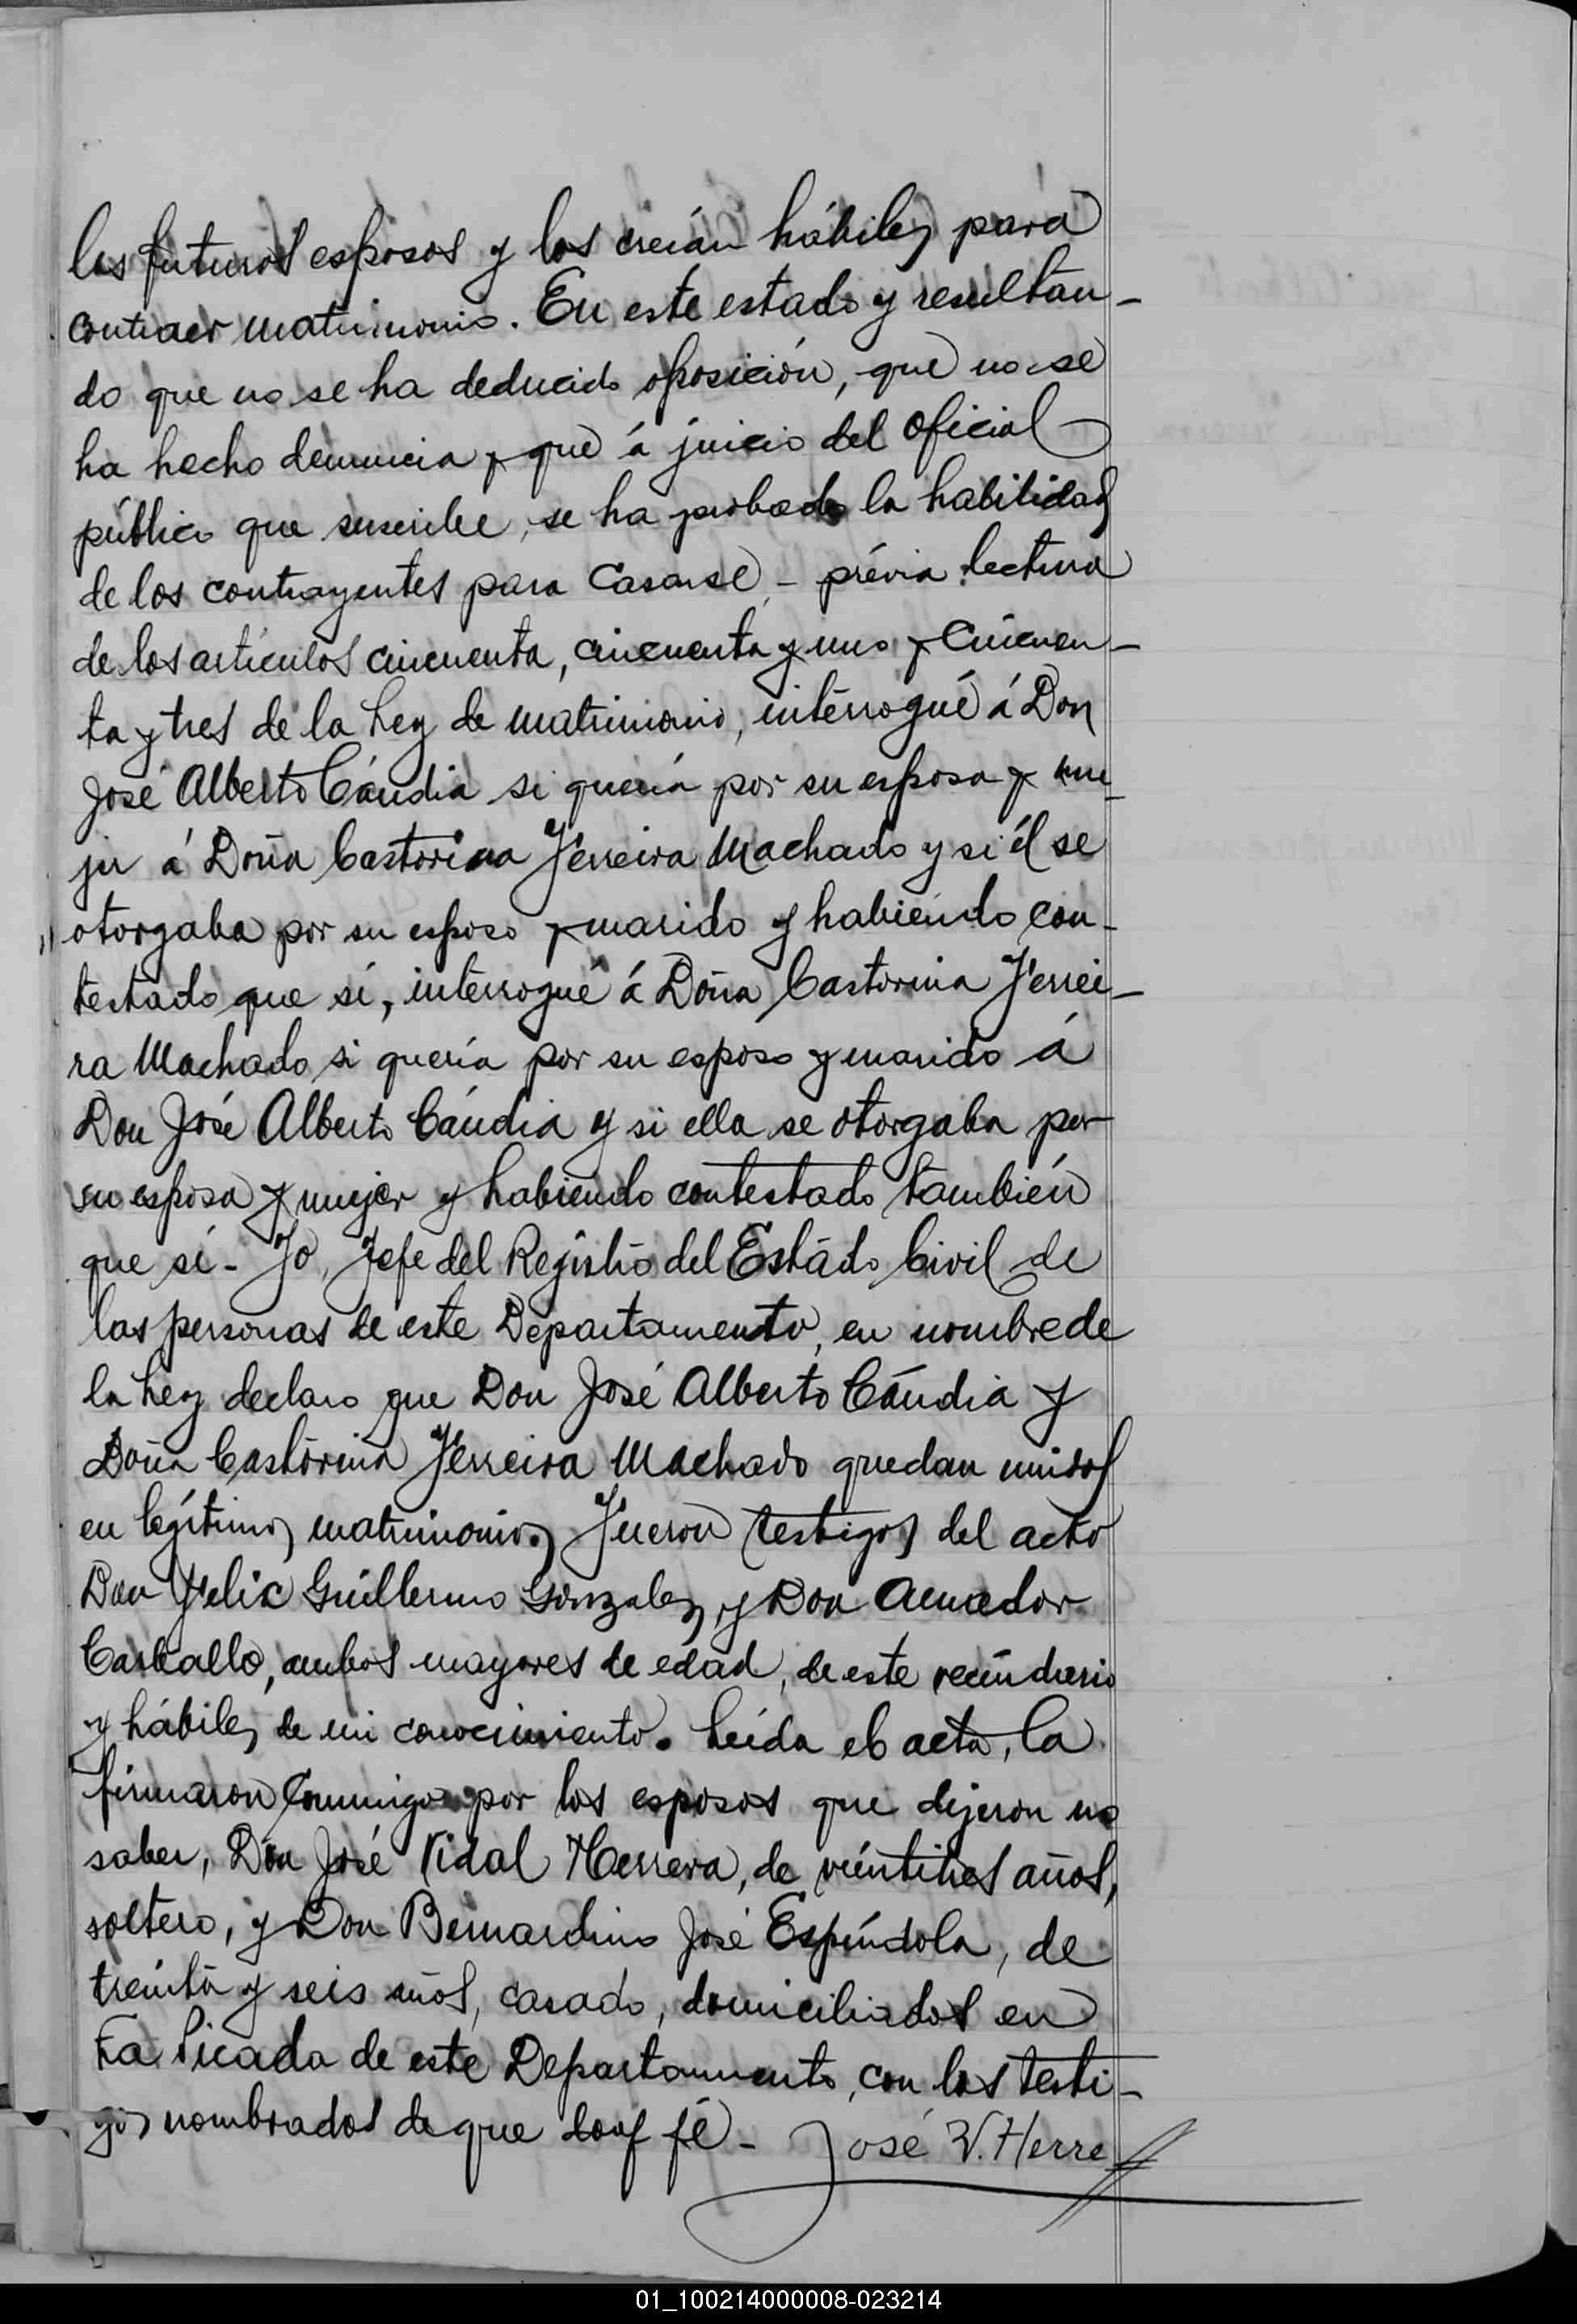 los futuros esposos y los creían hábiles para
contraer matrimonio. En este estado y resultan-
do que no se ha deducido oposición, que no se
ha hecho denuncia y que á juicio del oficial
público que suscribe, se ha probado la habilidad
de los contrayentes para casarse, - prévia lectura
de los artículos cincuenta, cincuenta y uno y cincuen-
ta y tres de la Ley de matrimonio, interrogué á Don
José Alberto Cándia si quería por su esposa y mu-
jer á Doña Castorina Ferreira Machado y si él se
otorgaba por su esposo y marido y habiendo con-
testado que sí, interrogué á Doña Castorina Ferrei-
ra Machado si quería por su esposo y marido á
Don José Alberto Cándia y si ella se otorgaba por
su esposa y mujer y habiendo contestado también
que sí - Yo, Jefe del Registro del Estado Civil de
las personas de este Departamento, en nombre de
la Ley declaro que Don José Alberto Cándia y
Doña Castorina Ferreira Machado quedan unidos
en legítimo matrimonio. Fueron testigos del acto
Don Felix Guillermo Gonzalez y Don Amador
Carballo, ambos mayores de edad, de este vecindario
y hábiles de mi conocimiento. Leída el acta, la
firmaron conmigo por los esposos que dijeron no
saber, Don José Vidal Herrera, de veintitres años,
soltero, y Don Bernardino José Espíndola, de
treinta y seis años, casado, domiciliados en
La Picada de este Departamento, con los testi-
gos nombrados de que doy fé - José V. Herre
01_100214000008-023214